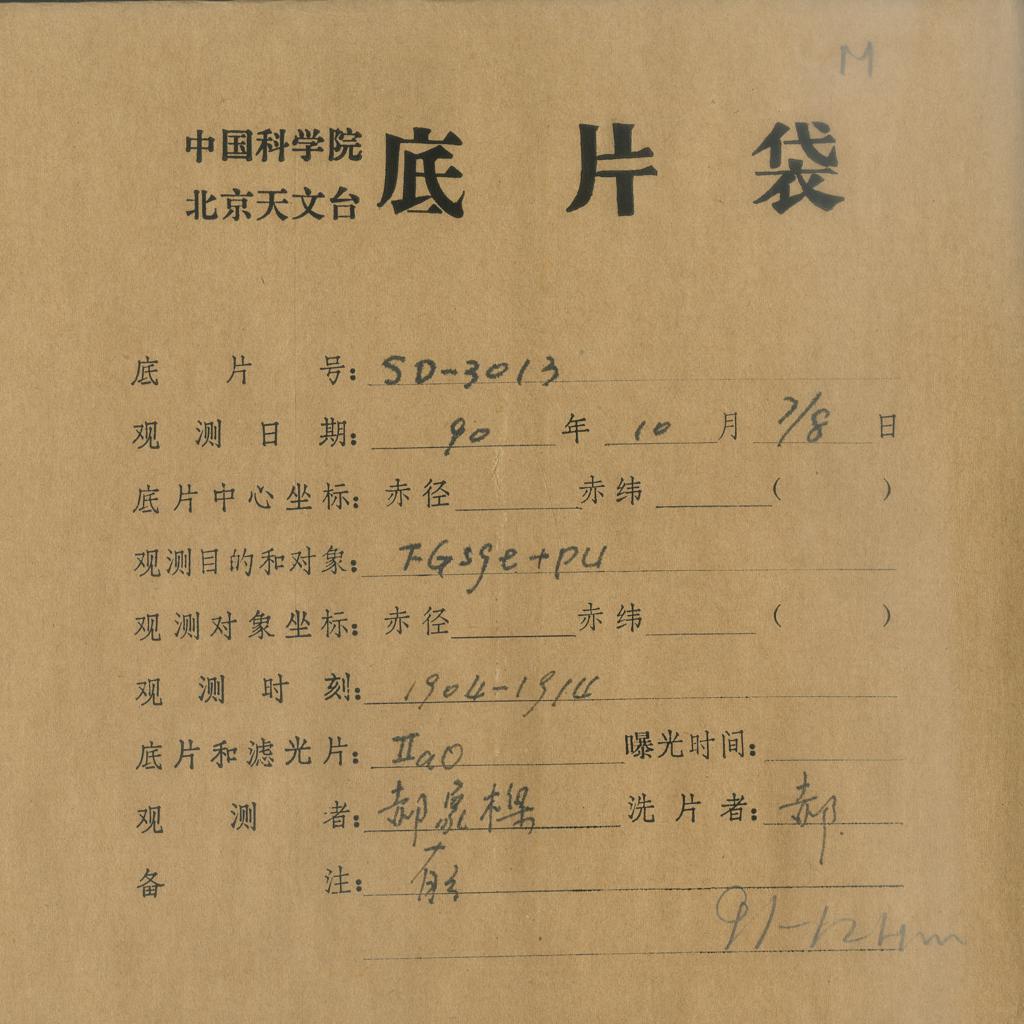 M
中国科学院
北京天文台
底片袋
底片号: SD-3013
观测日期: 90 年 10 月 7/8 日
底片中心坐标: 赤径 赤纬 ( )
观测目的和对象: FGsge+pu
观测对象坐标: 赤径 赤纬 ( )
观测时刻: 1904-1914
底片和滤光片: IIaO 曝光时间:
观测者: 郝象樑 洗片者: 郝
备注: 有云
91-12